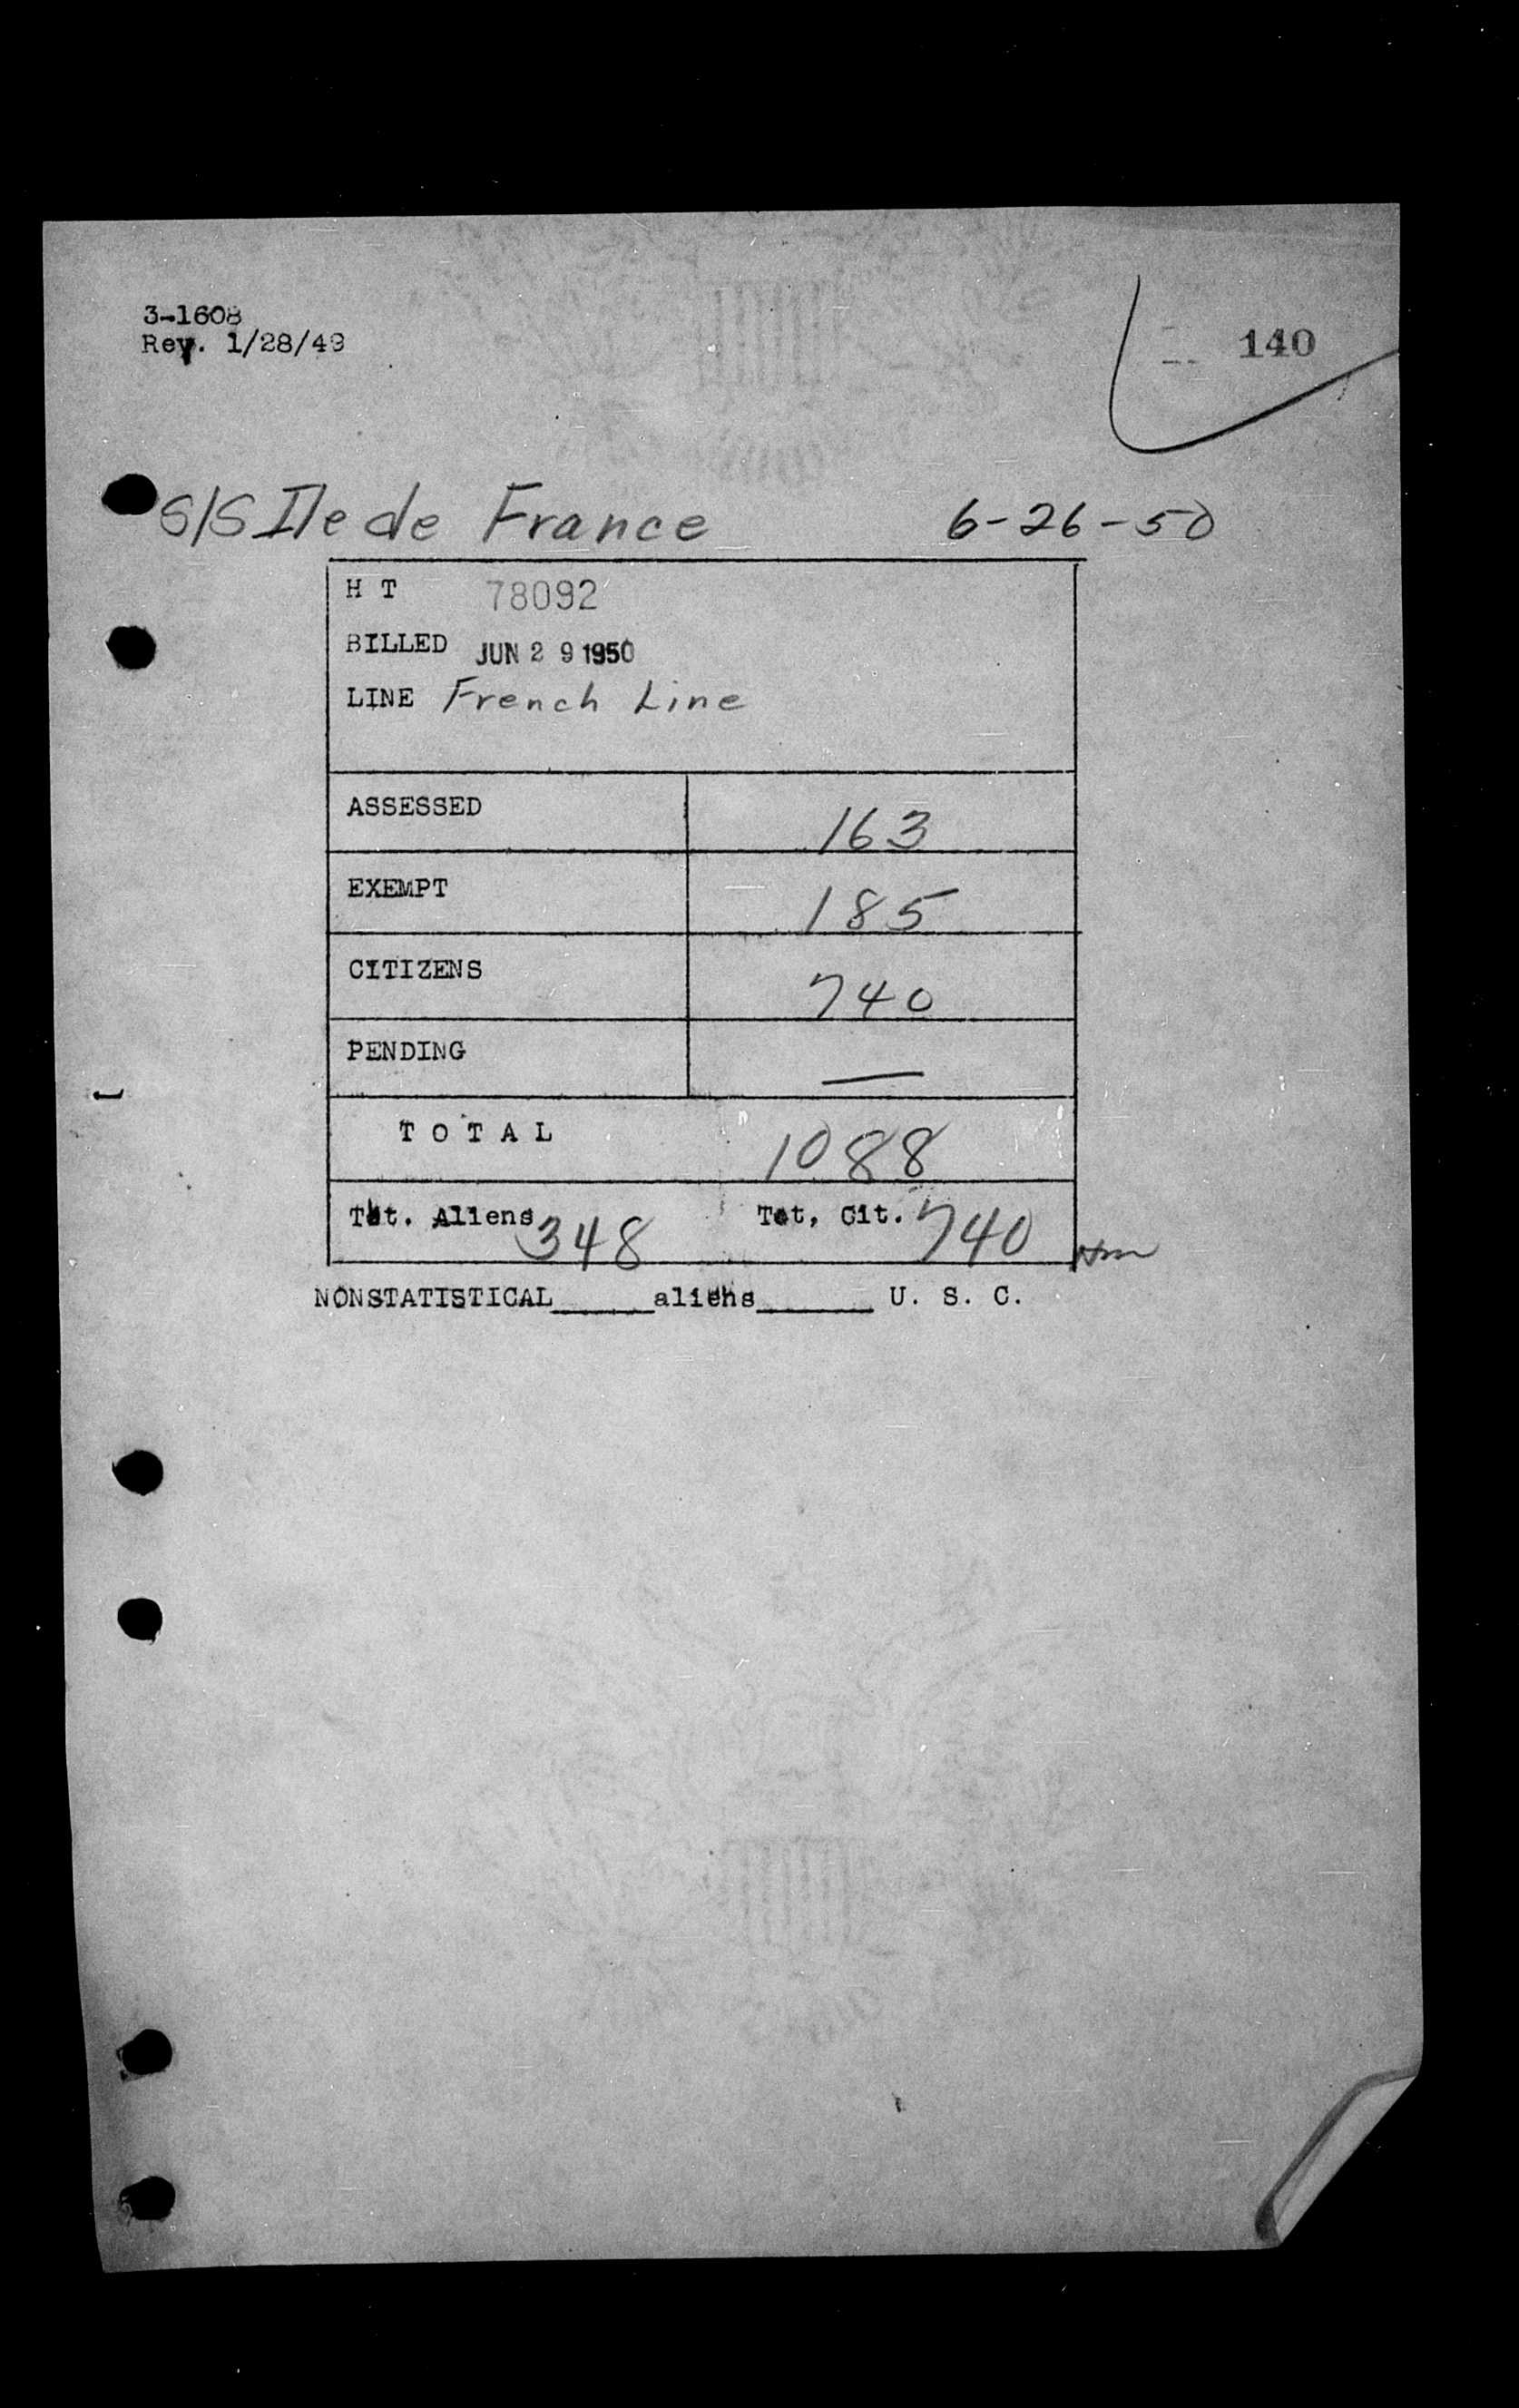 3-1608
Rev. 1/28/49
140
S/S Ile de France 6-26-50
H T 78092
BILLED JUN 29 1950
LINE French Line
ASSESSED 163
EXEMPT 185
CITIZENS 740
PENDING —
T O T A L 1088
Tot. Aliens 348 Tot, Cit. 740
NONSTATISTICAL_____aliens______ U. S. C.